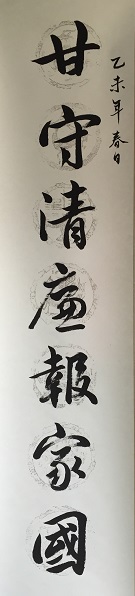 乙未年春日
甘守清廉報家國